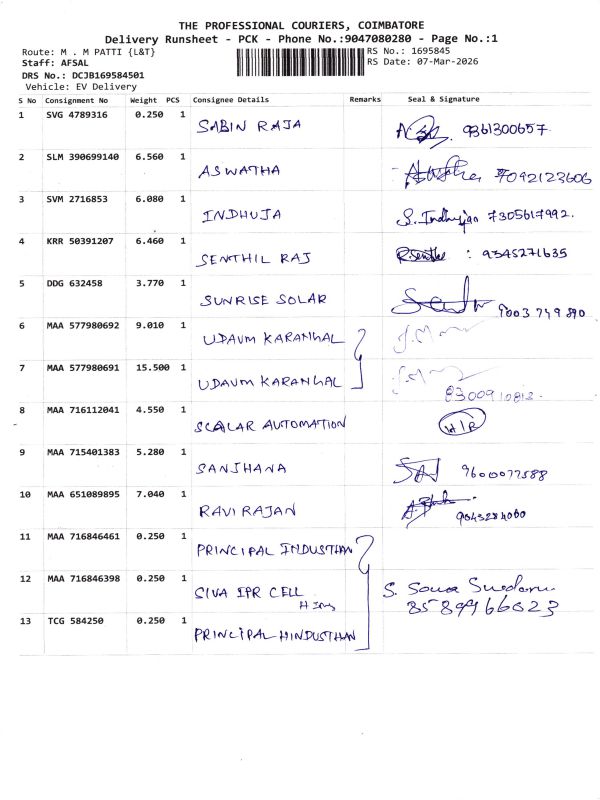 THE PROFESSIONAL COURIERS, COIMBATORE
Delivery Runsheet - PCK - Phone No.:9047080280 - Page No.:1
Route: M . M PATTI {L&T} RS No.: 1695845
Staff: AFSAL RS Date: 07-Mar-2026
DRS No.: DCJB169584501
Vehicle: EV Delivery
S No Consignment No Weight PCS Consignee Details Remarks Seal & Signature
1 SVG 4789316 0.250 1 SABIN RAJA 9361300657
2 SLM 390699140 6.560 1 ASWATHA 7092123606
3 SVM 2716853 6.080 1 INDHUJA S. Indhujan 7305617992.
4 KRR 50391207 6.460 1 SENTHIL RAJ : 9345271635
5 DDG 632458 3.770 1 SUNRISE SOLAR 9003 749 890
6 MAA 577980692 9.010 1 UDAVM KARANGAL
7 MAA 577980691 15.500 1 UDAVM KARANGAL 8300910813.
8 MAA 716112041 4.550 1 SCALAR AUTOMATION H/R
9 MAA 715401383 5.280 1 SANJHANA 9600077588
10 MAA 651089895 7.040 1 RAVI RAJAN 9043284000
11 MAA 716846461 0.250 1 PRINCIPAL INDUSTHAN
12 MAA 716846398 0.250 1 SIVA IPR CELL
13 TCG 584250 0.250 1 PRINCIPAL HINDUSTHAN
8589966023